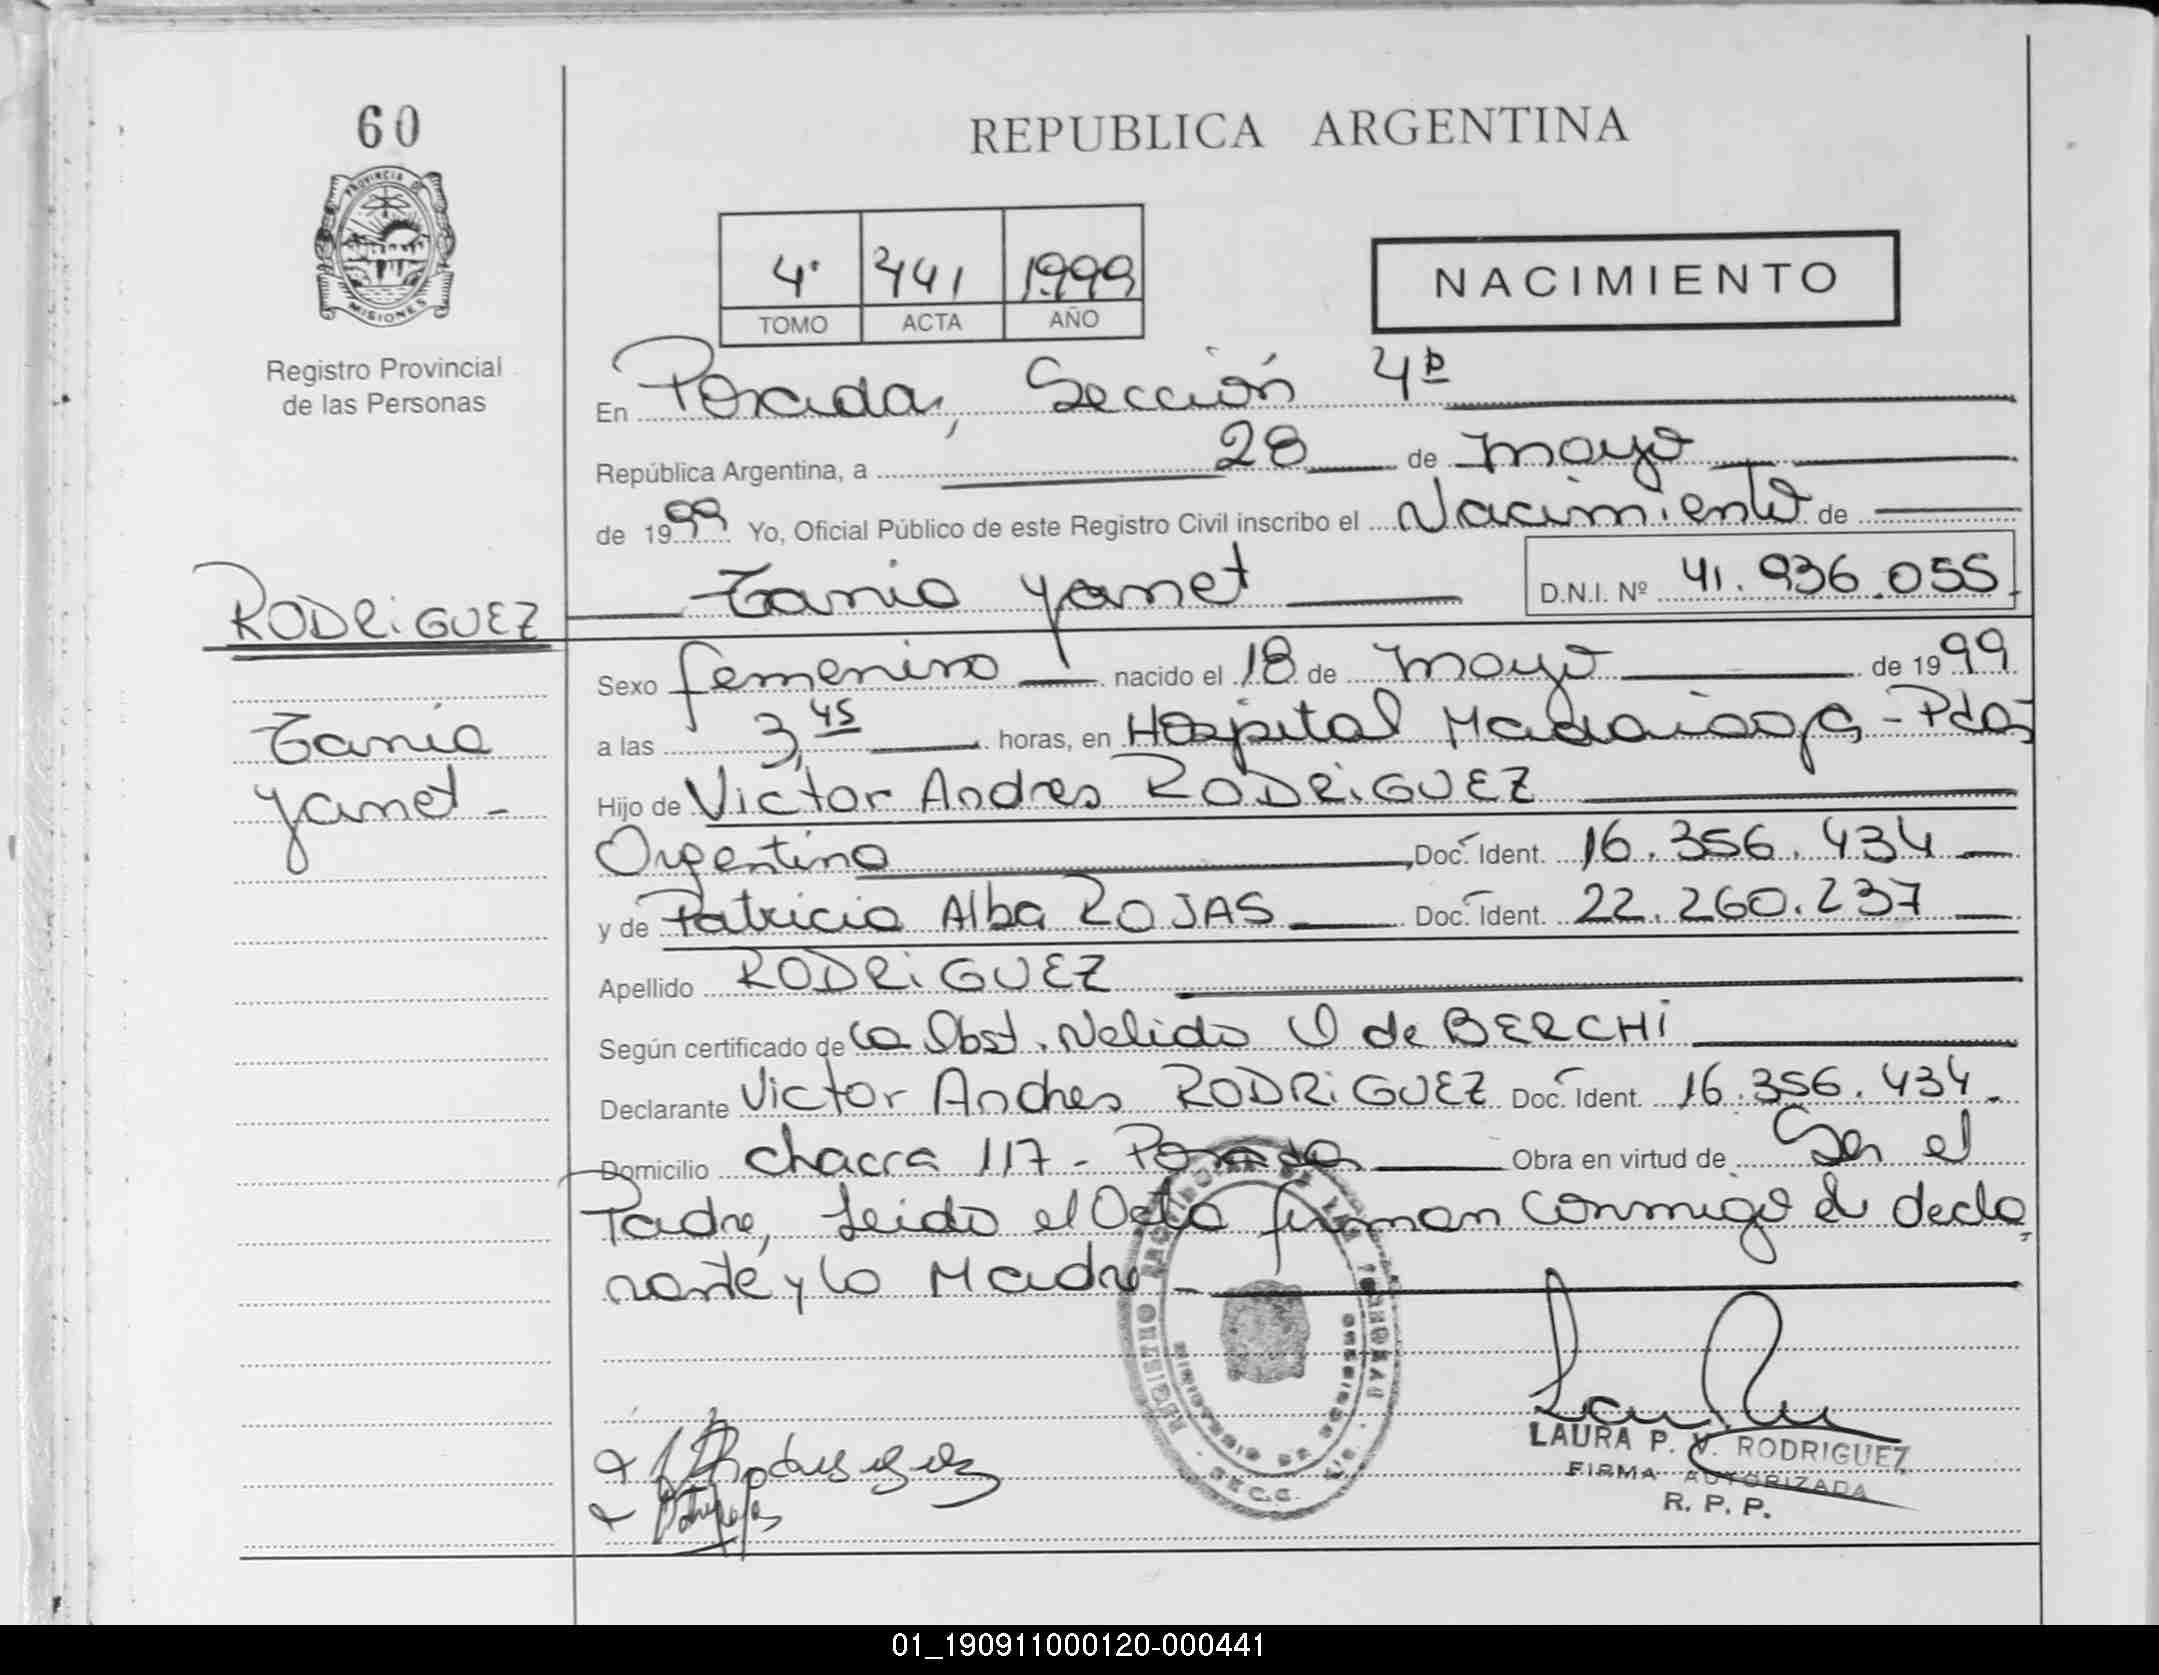 60
PROVINCIA DE
MISIONES
Registro Provincial
de las Personas
REPUBLICA ARGENTINA
4° 441 1999
TOMO ACTA AÑO
NACIMIENTO
En Posadas, Sección 4ª
República Argentina, a 28 de mayo
de 1999 Yo, Oficial Público de este Registro Civil inscribo el Nacimiento de
Tania Yanet D.N.I. Nº 41.936.055
RODRiGUEZ
Tania
Yanet -
Sexo femenino nacido el 18 de mayo de 1999
a las 3,45 horas, en Hospital Madariaga - Pdas
Hijo de Victor Andres RODRiGUEZ
Argentino Doc. Ident. 16.356.434
y de Patricia Alba ROJAS Doc. Ident. 22.260.237
Apellido RODRiGUEZ
Según certificado de la Obst. Nelida O de BERCHi
Declarante Victor Andres RODRiGUEZ Doc. Ident. 16.356.434.
Domicilio chacra 117 - Posadas Obra en virtud de Ser el
Padre, Leido el Acta firman conmigo el decla
rante y la Madre -
LAURA P. V. RODRIGUEZ
FIRMA AUTORIZADA
R. P. P.
01_190911000120-000441